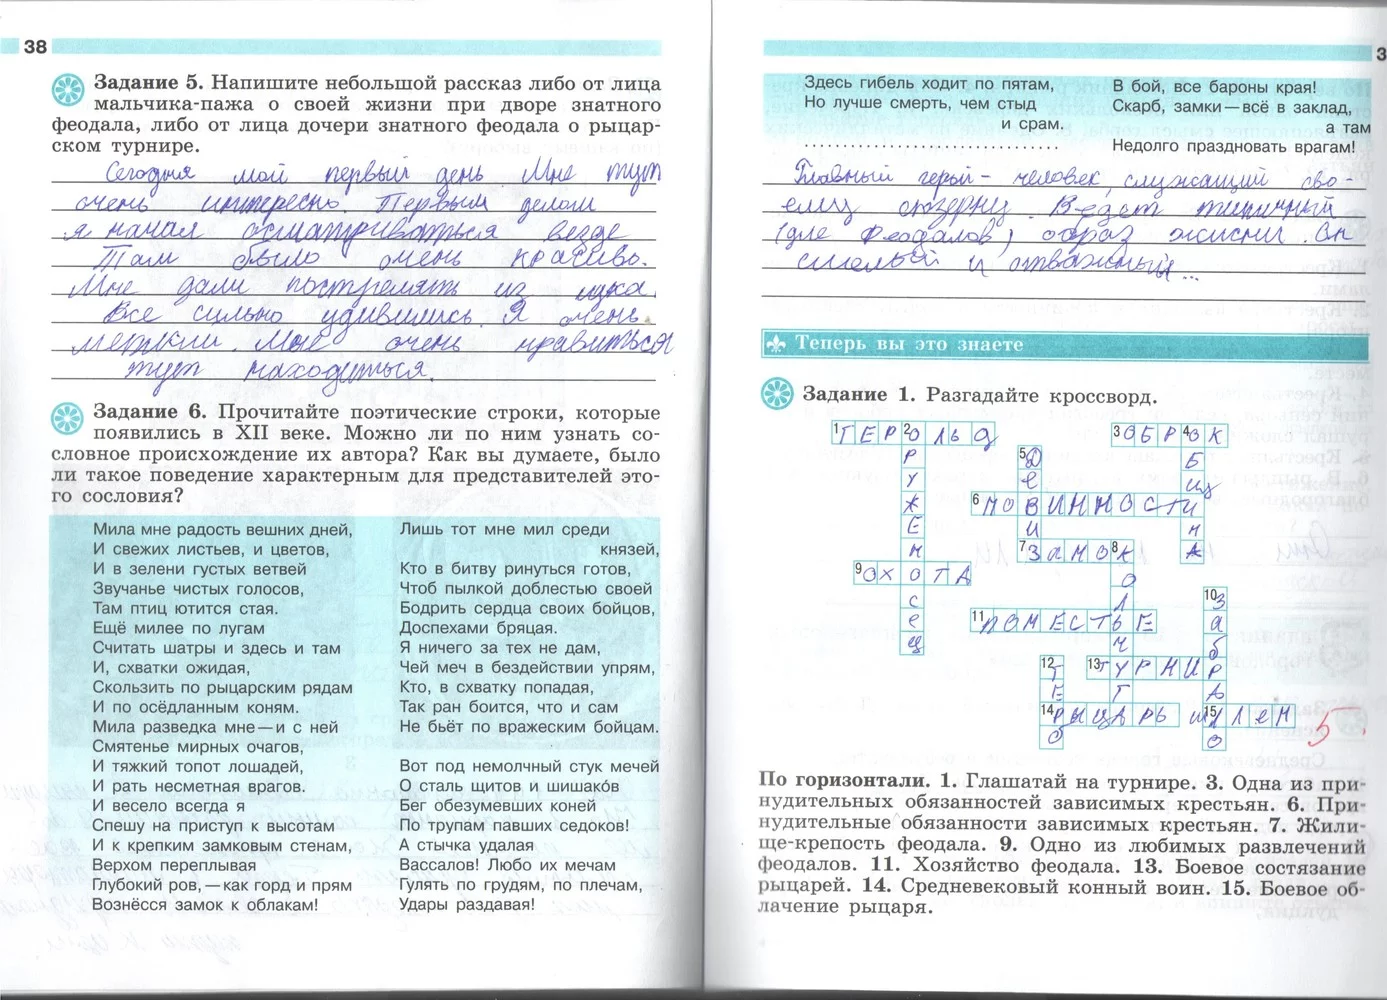 38
Задание 5. Напишите небольшой рассказ либо от лица
мальчика-пажа о своей жизни при дворе знатного
феодала, либо от лица дочери знатного феодала о рыцар-
ском турнире.
Сегодня мой первый день Мне тут
очень интересно. Первым делом
я начал осматриваться везде
Там было очень красиво.
Мне дали пострелять из лука.
Все сильно удивились. Я очень
меткий. Мне очень нравиться
тут находиться.
Задание 6. Прочитайте поэтические строки, которые
появились в XII веке. Можно ли по ним узнать со-
словное происхождение их автора? Как вы думаете, было
ли такое поведение характерным для представителей это-
го сословия?
Мила мне радость вешних дней,
И свежих листьев, и цветов,
И в зелени густых ветвей
Звучанье чистых голосов,
Там птиц ютится стая.
Ещё милее по лугам
Считать шатры и здесь и там
И, схватки ожидая,
Скользить по рыцарским рядам
И по осёдланным коням.
Мила разведка мне — и с ней
Смятенье мирных очагов,
И тяжкий топот лошадей,
И рать несметная врагов.
И весело всегда я
Спешу на приступ к высотам
И к крепким замковым стенам,
Верхом переплывая
Глубокий ров, — как горд и прям
Вознёсся замок к облакам!
Лишь тот мне мил среди
князей,
Кто в битву ринуться готов,
Чтоб пылкой доблестью своей
Бодрить сердца своих бойцов,
Доспехами бряцая.
Я ничего за тех не дам,
Чей меч в бездействии упрям,
Кто, в схватку попадая,
Так ран боится, что и сам
Не бьёт по вражеским бойцам.
Вот под немолчный стук мечей
О сталь щитов и шишаков
Бег обезумевших коней
По трупам павших седоков!
А стычка удалая
Вассалов! Любо их мечам
Гулять по грудям, по плечам,
Удары раздавая!
3
Здесь гибель ходит по пятам,
Но лучше смерть, чем стыд
и срам.
..................................
В бой, все бароны края!
Скарб, замки — всё в заклад,
а там
Недолго праздновать врагам!
Главный герой - человек, служащий сво-
ему сюзерну. Ведет типичный
(для феодалов) образ жизни. Он
смелый и отважный...
Теперь вы это знаете
Задание 1. Разгадайте кроссворд.
1 ГЕРОЛЬД
2 ОРУЖЕНОСЕЦ
3 ОБРОК
4 ОБЩИНА
5 ДЕВИЗ
6 ПОВИННОСТИ
7 ЗАМОК
8 КОЛЬЧУГА
9 ОХОТА
10 ЗАБРАЛО
11 ПОМЕСТЬЕ
12 ГЕРО
13 ТУРНИР
14 РЫЦАРЬ
15 ШЛЕМ
5
По горизонтали. 1. Глашатай на турнире. 3. Одна из при-
нудительных обязанностей зависимых крестьян. 6. При-
нудительные обязанности зависимых крестьян. 7. Жили-
ще-крепость феодала. 9. Одно из любимых развлечений
феодалов. 11. Хозяйство феодала. 13. Боевое состязание
рыцарей. 14. Средневековый конный воин. 15. Боевое об-
лачение рыцаря.